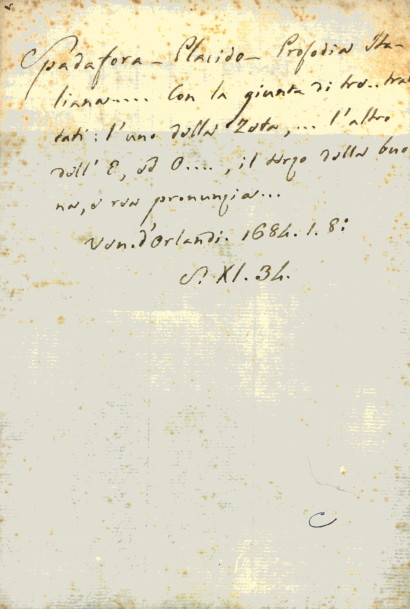 Spadafora - Placido - Prosodia Ita-
liana.... Con la giunta di tre.. trat
tati: l'uno della Zeta,... l'altro
dell' E, ed O...., il terzo della buo
na, e rea pronunzia...
Ven. d'Orlandi. 1684. 1. 8:
S. XI. 34.
C